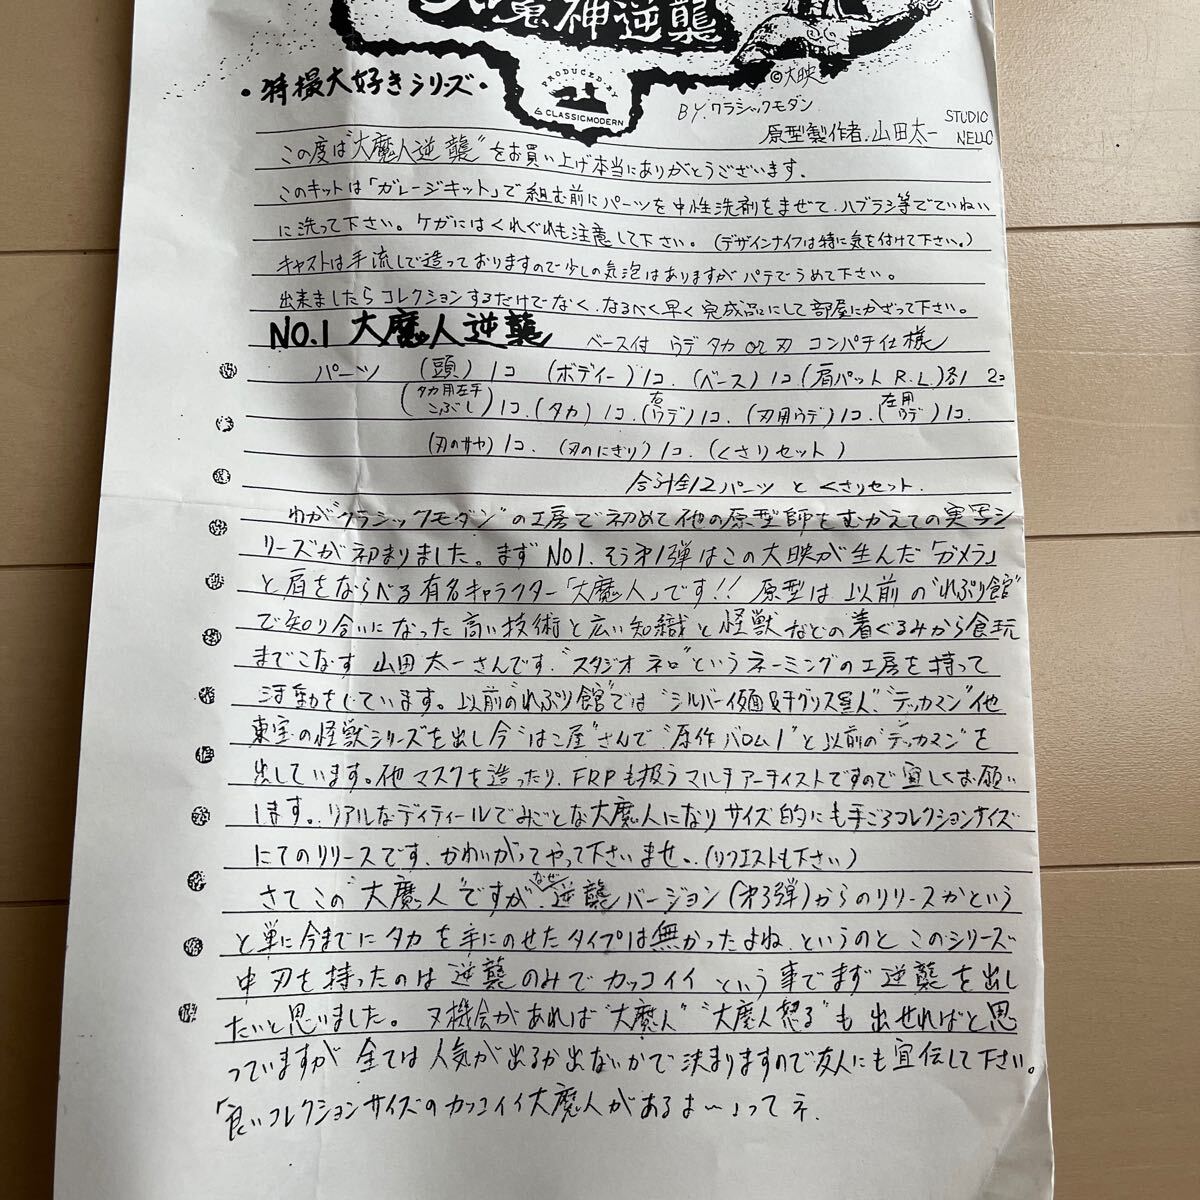 魔神逆襲
・特撮大好きシリーズ・
PRODUCED BY
CLASSICMODERN
©大映
BY.クラシックモダン
STUDIO
NELLO
原型製作者.山田太一
この度は"大魔人逆襲"をお買い上げ本当にありがとうございます.
このキットは「ガレージキット」で組む前にパーツを中性洗剤をまぜて、ハブラシ等でていねい
に洗って下さい。ケガにはくれぐれも注意して下さい。(デザインナイフは特に気を付けて下さい。)
キャストは手流しで造っておりますので少しの気泡はありますがパテでうめて下さい。
出来ましたらコレクションするだけでなく、なるべく早く完成品にして部屋にかざって下さい。
NO.1 大魔人逆襲 ベース付 ウデ タカ or 刃 コンパチ仕様
パーツ (頭)1コ (ボディー)1コ.(ベース)1コ(肩パット R.L.)各1 2コ
(タカ用左手こぶし)1コ.(タカ)1コ.(右ウデ)1コ.(刃用ウデ)1コ.(左用ウデ)1コ.
(刃のサヤ)1コ.(刃のにぎり)1コ.(くさりセット)
合計全12パーツ と くさりセット.
わが"クラシックモダン"の工房で初めて他の原型師をむかえての実写シ
リーズが初まりました。まずNO1.そう第1弾はこの大映が生んだ「ガメラ」
と肩をならべる有名キャラクター「大魔人」です!! 原型は以前の"れぷり館"
で知り合いになった高い技術と広い知識と怪獣などの着ぐるみから食玩
までこなす 山田太一さんです."スタジオネロ"というネーミングの工房を持って
活動をしています。以前の"れぷり館"では"シルバー仮面&チグリス星人"、"テッカマン"他
東宝の怪獣シリーズを出し今"はこ屋"さんで"原作バロム1"と以前の"テッカマン"を
出しています。他マスクを造ったり、FRPも扱うマルチアーティストですので宜しくお願い
します。.リアルなディティールでみごとな大魔人になりサイズ的にも手ごろコレクションサイズ
にてのリリースです.かわいがってやって下さいませ..(リクエストも下さい)
さてこの"大魔人"ですが、なぜ逆襲バージョン(第3弾)からのリリースかという
と単に今までにタカを手にのせたタイプは無かったよね.というのと このシリーズ
中刃を持ったのは逆襲のみでカッコイイという事でまず逆襲を出し
たいと思いました。又機会があれば"大魔人""大魔人怒る"も出せればと思
っていますが 全ては人気が出るか出ないかで決まりますので友人にも宣伝して下さい。
「良いコレクションサイズのカッコイイ大魔人があるよ〜」ってネ.